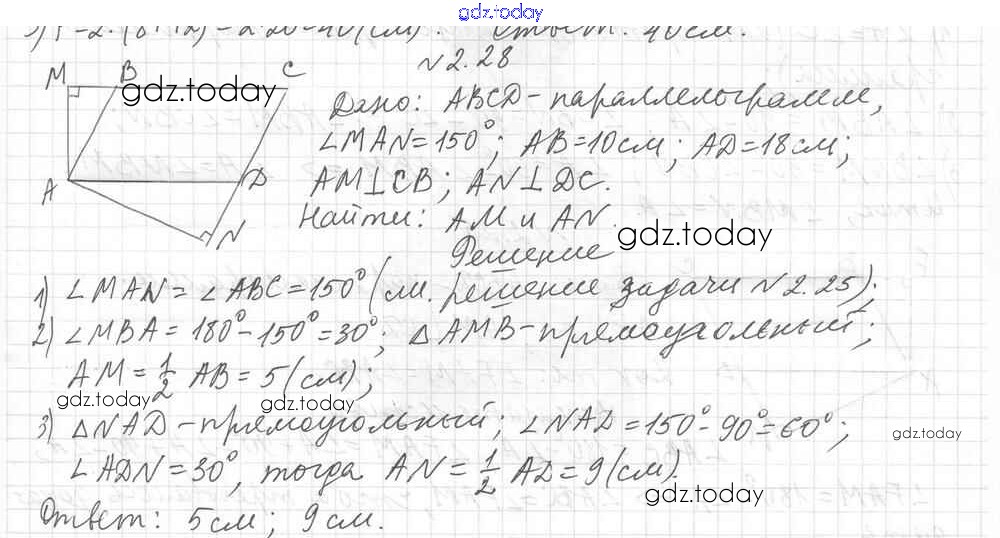 gdz.today
3) P=2·(8+12)=2·20=40(см). Ответ: 40см.
N2.28
M B C
gdz.today
Дано: ABCD-параллелограмм,
∠MAN=150°; AB=10см; AD=18см;
A D
AM⊥CB; AN⊥DC.
N
Найти: AM и AN.
gdz.today
Решение
1) ∠MAN=∠ABC=150° (см. решение задачи N2.25);
2) ∠MBA=180°-150°=30°; △AMB-прямоугольный;
AM=1/2 AB=5(см);
gdz.today gdz.today
3) △NAD-прямоугольный; ∠NAD=150°-90°=60°;
gdz.today
∠ADN=30°, тогда AN=1/2 AD=9(см).
gdz.today
Ответ: 5см; 9см.